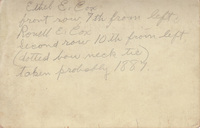 Ethel E. Cox
front row 7th from left.
Rowell C Cox
second row 10th from left
(dotted bow neck tie)
taken probably 1887